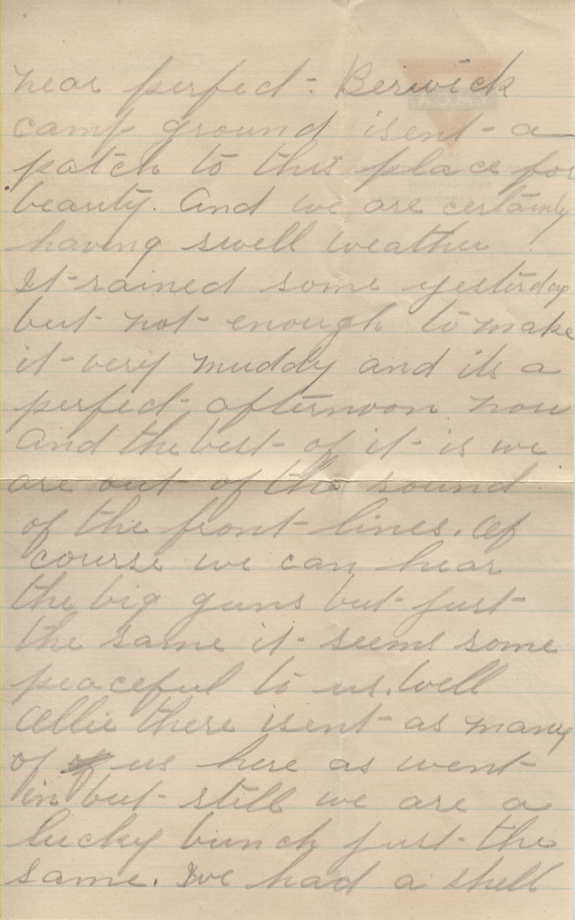 near perfect. Berwick
camp ground isent a
patch to this place for
beauty. And we are certainly
having swell weather
It rained some yesterday
but not enough to make
it very muddy and its a
perfect afternoon now
and the best of it is we
are out of the sound
of the front lines. Of
course we can hear
the big guns but just
the same it seems some
peaceful to us. Well
Allie there isent as many
of us here as went
in but still we are a
lucky bunch just the
same. Ive had a shell